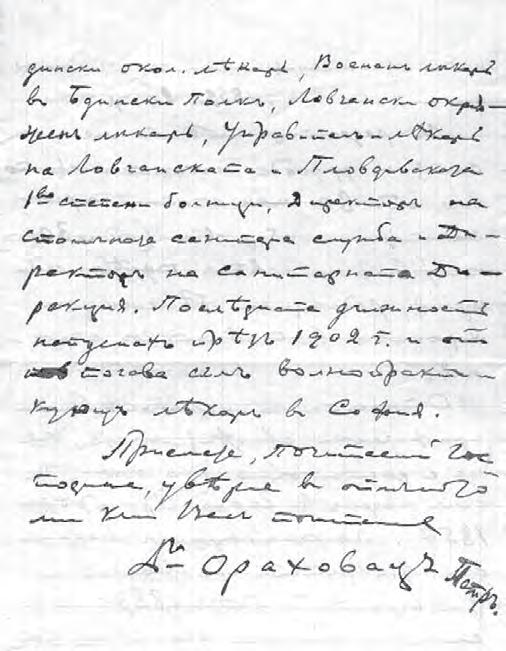 дински окол. лѣкарь, Воененъ лѣкарь
въ Бдински полкъ, Ловчански окрѫ-
женъ лѣкарь, Управитель и лѣкарь
на Ловчанската и Пловдивската
1во степени болници, Директоръ на
столичната санитарна служба и Ди-
ректоръ на Санитарната Ди-
рекция. Послѣдната длъжность
напуснахъ прѣзъ 1902 г. и отъ
тогава съмъ волнопракти-
кующъ лѣкарь въ София.
Приемете, почитаемий Гос-
подине, увѣрение въ отличното
ми къмъ Васъ почитание
Д-ръ Ораховацъ Петръ.